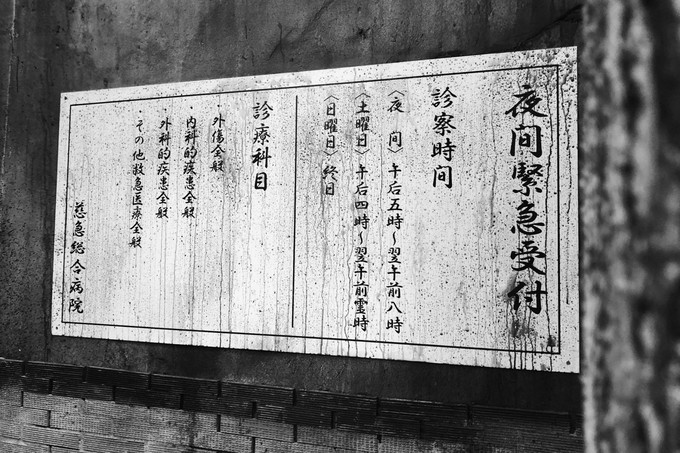 夜間緊急受付
診察時間
〈夜　間〉午后五時〜翌午前八時
〈土曜日〉午后四時〜翌午前零時
〈日曜日〉終日
診療科目
・外傷全般
・内科的疾患全般
・外科的疾患全般
・その他救急医療全般
慈急総合病院